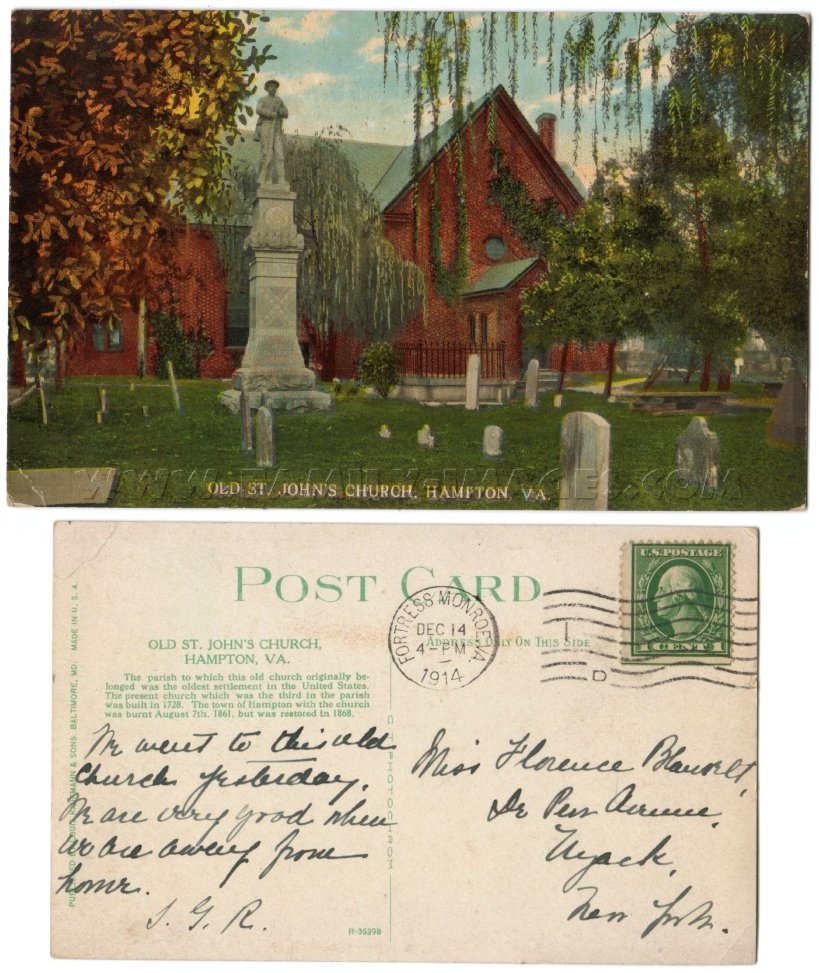 WWW.FAMILY-IMAGES.COM
OLD ST. JOHN'S CHURCH, HAMPTON, VA.
POST CARD
ADDRESS ONLY ON THIS SIDE
U.S. POSTAGE
1 CENT 1
FORTRESS MONROE VA
DEC 14
4-PM
1914
D
OLD ST. JOHN'S CHURCH,
HAMPTON, VA.
The parish to which this old church originally be-
longed was the oldest settlement in the United States.
The present church which was the third in the parish
was built in 1728. The town of Hampton with the church
was burnt August 7th, 1861, but was restored in 1868.
We went to this old
church yesterday.
We are very good when
we are away from
home.
S. G. R.
Miss Florence
De Pew Avenue,
Nyack,
New York.
PUBLISHED BY LOUIS KAUFMANN & SONS, BALTIMORE, MD. MADE IN U. S. A.
R-35398